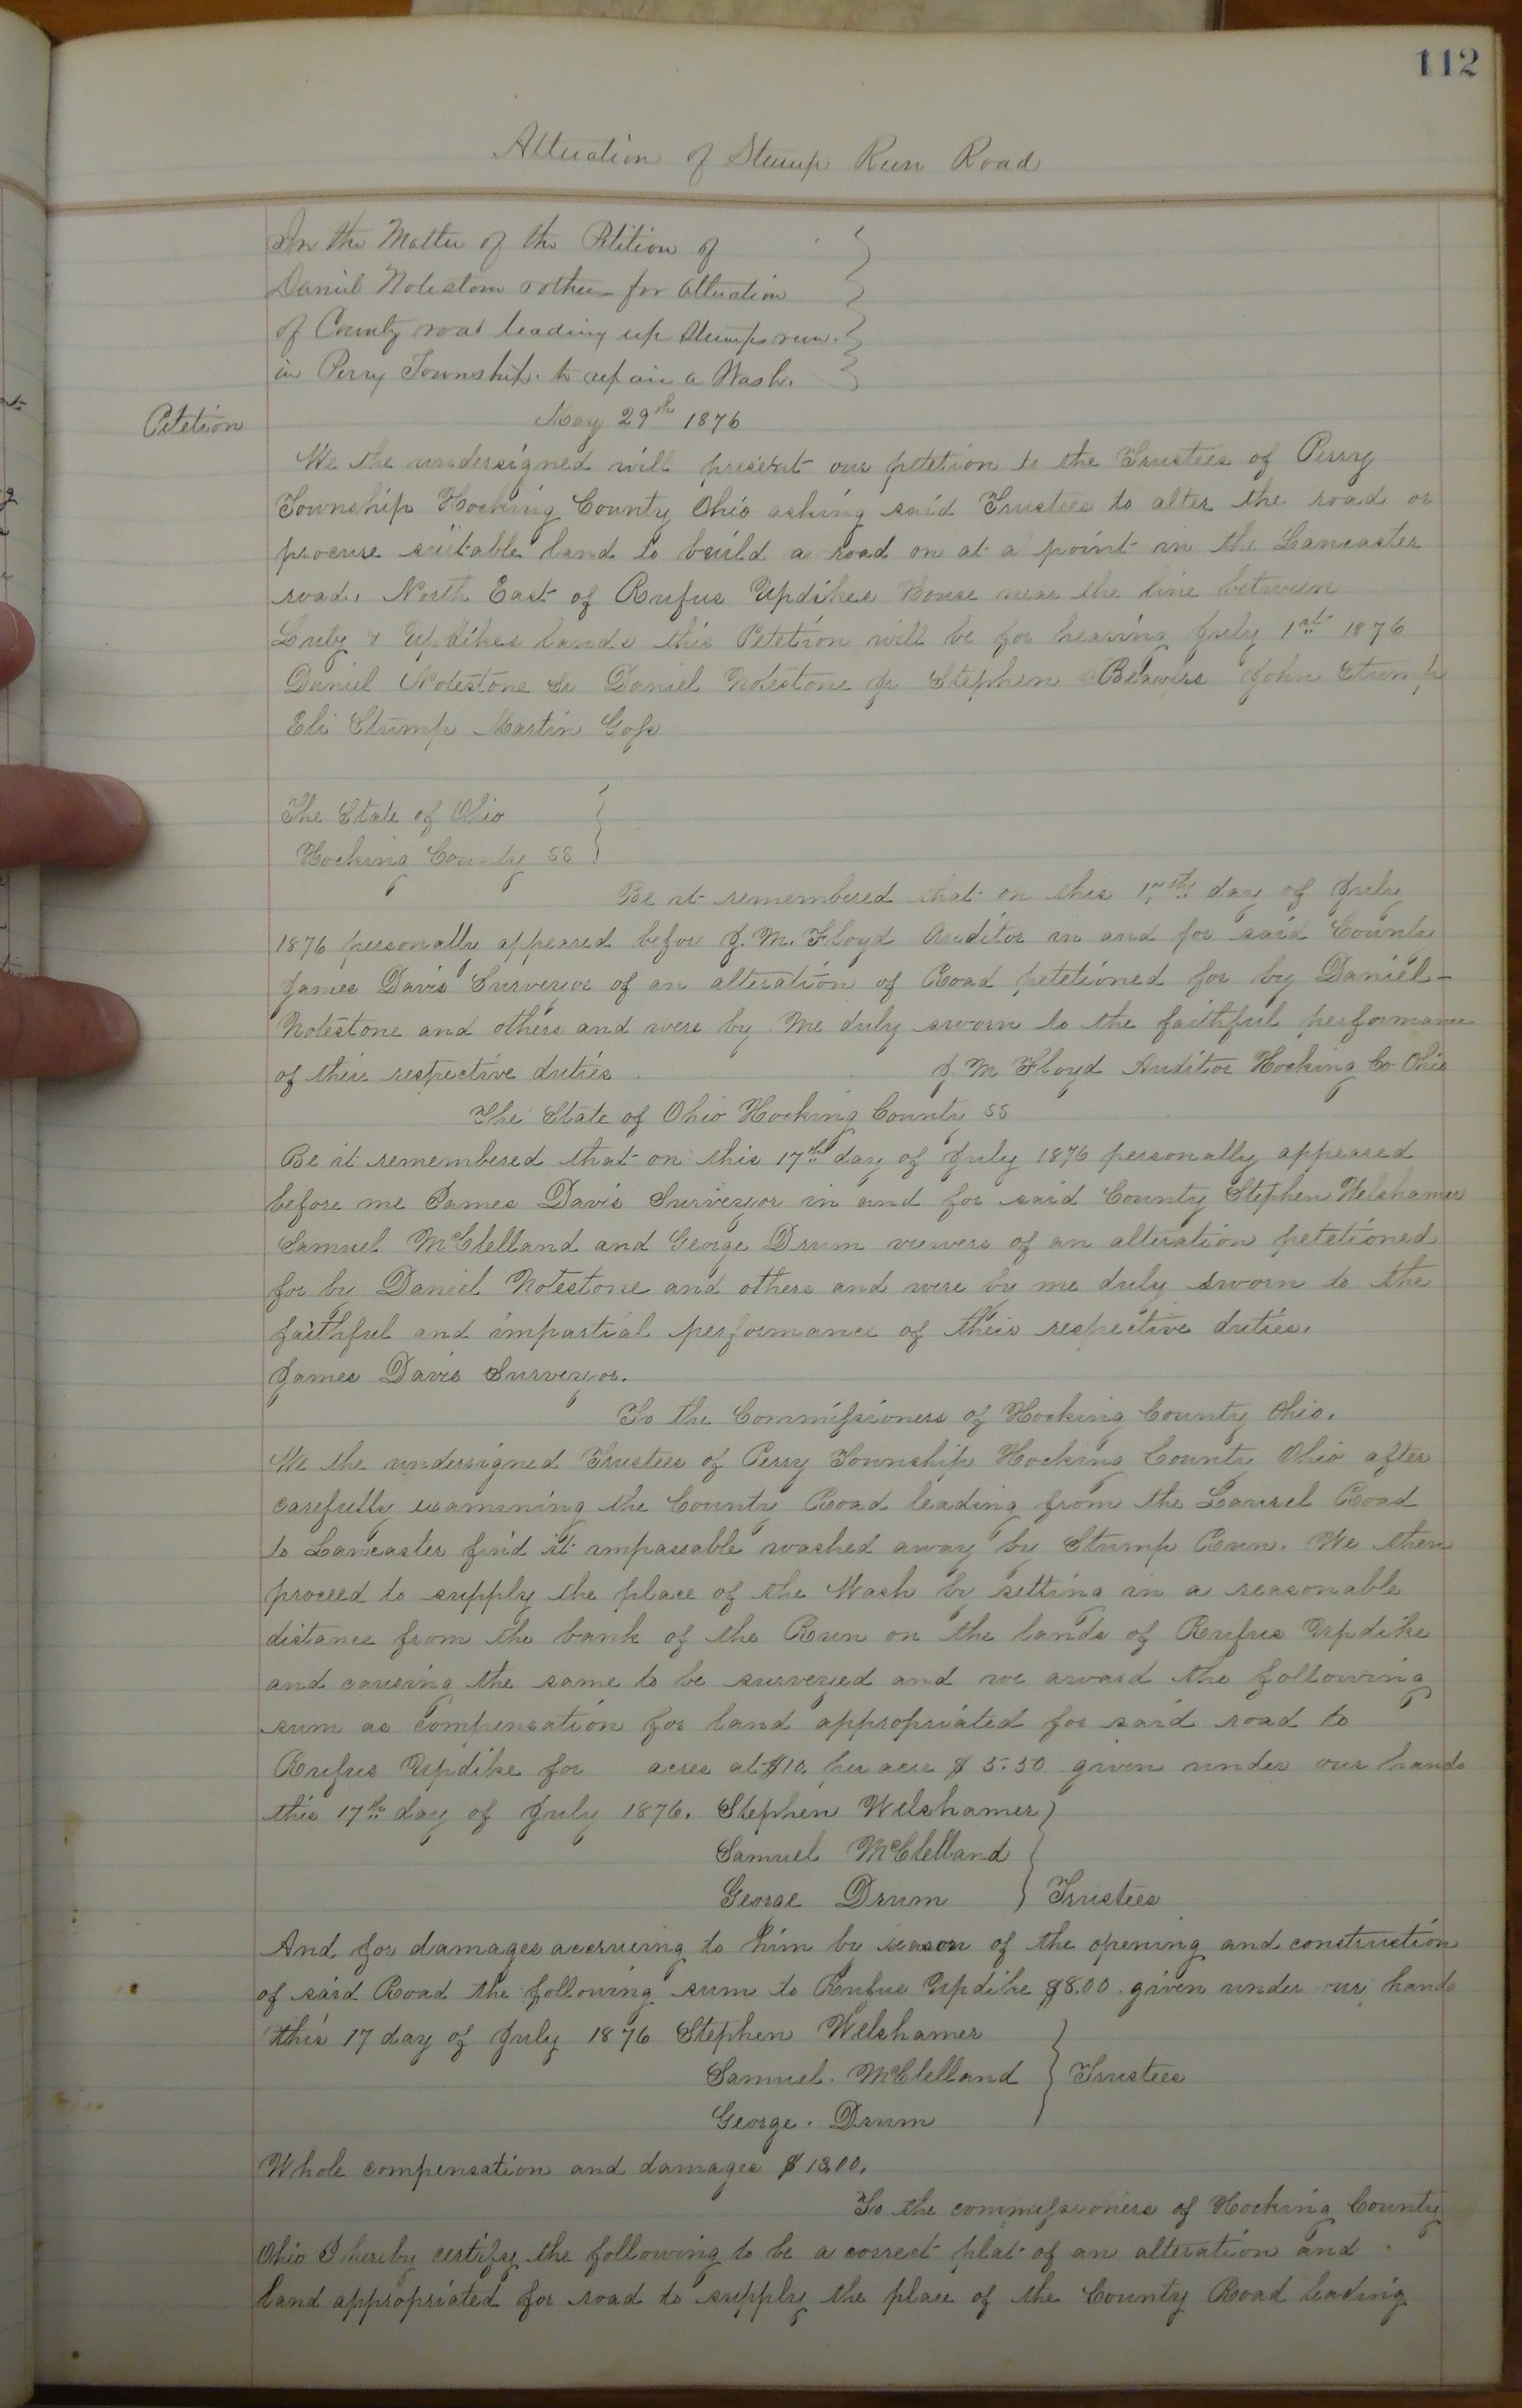 112
Alteration of Stump Run Road
In the Matter of the Petition of
Daniel Notestone & others for alteration
of County road leading up Stump run.
in Perry Township. to repair a Wash.
Petetion
May 29th 1876
We the undersigned will present our petetion to the Trustees of Perry
Township Hocking County Ohio asking said Trustees to alter the road or
procure suitable land to build a road on at a point in the Lancaster
road, North East of Rufus Updikes House near the line between
& Updikes lands this Petetion will be for hearing July 1st 1876
Daniel Notestone Sr Daniel Notestone Jr Stephen John Stump
Eli Stump Martin Goss
The State of Ohio
Hocking County SS
Be it remembered that on this 17th day of July
1876 personally appeared before J. M. Floyd Auditor in and for said County
James Davis Surveyor of an alteration of Road petetioned for by Daniel-
Notestone and others and were by Me duly sworn to the faithful performance
of their respective duties. J. M Floyd Auditor Hocking Co Ohio
The State of Ohio Hocking County SS
Be it remembered that on this 17th day of July 1876 personally appeared
before me James Davis Surveyor in and for said County Stephen Welshamer
Samuel McClelland and George Drum viewers of an alteration petetioned
for by Daniel Notestone and others and were by me duly sworn to the
faithful and impartial performance of their respective duties.
James Davis Surveyor.
To the Commissioners of Hocking County Ohio.
We the undersigned Trustees of Perry Township Hocking County Ohio after
carefully examining the County Road leading from the Laurel Road
to Lancaster find it impassable washed away by Stump Run. We then
proceed to supply the place of the Wash by setting in a reasonable
distance from the bank of the Run on the lands of Rufus Updike
and causing the same to be surveyed and we award the following
sum as compensation for land appropriated for said road to
Rufus Updike for acres at $10. per acre $ 5.50 given under our hands
this 17th day of July 1876. Stephen Welshamer
Samuel McClelland
George Drum Trustees
And for damages accruing to him by reason of the opening and construction
of said Road the following sum to Rufus Updike $8.00 given under our hands
this 17 day of July 1876 Stephen Welshamer
Samuel. McClelland Trustees
George. Drum
Whole compensation and damages $ 13.00.
To the commissioners of Hocking County
Ohio I hereby certify the following to be a correct plat of an alteration and
land appropriated for road to supply the place of the County Road leading